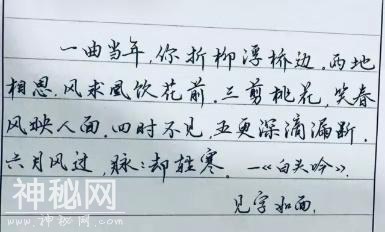 一曲当年,你折柳浮桥边.两地
相思.风求凰饮花前.三剪桃花,笑春
风映人面.四时不见,五更深滴漏断.
六月风过,脉:却胜寒.—《白头吟》.
见字如面.
神秘网
www.xunshenmi.com